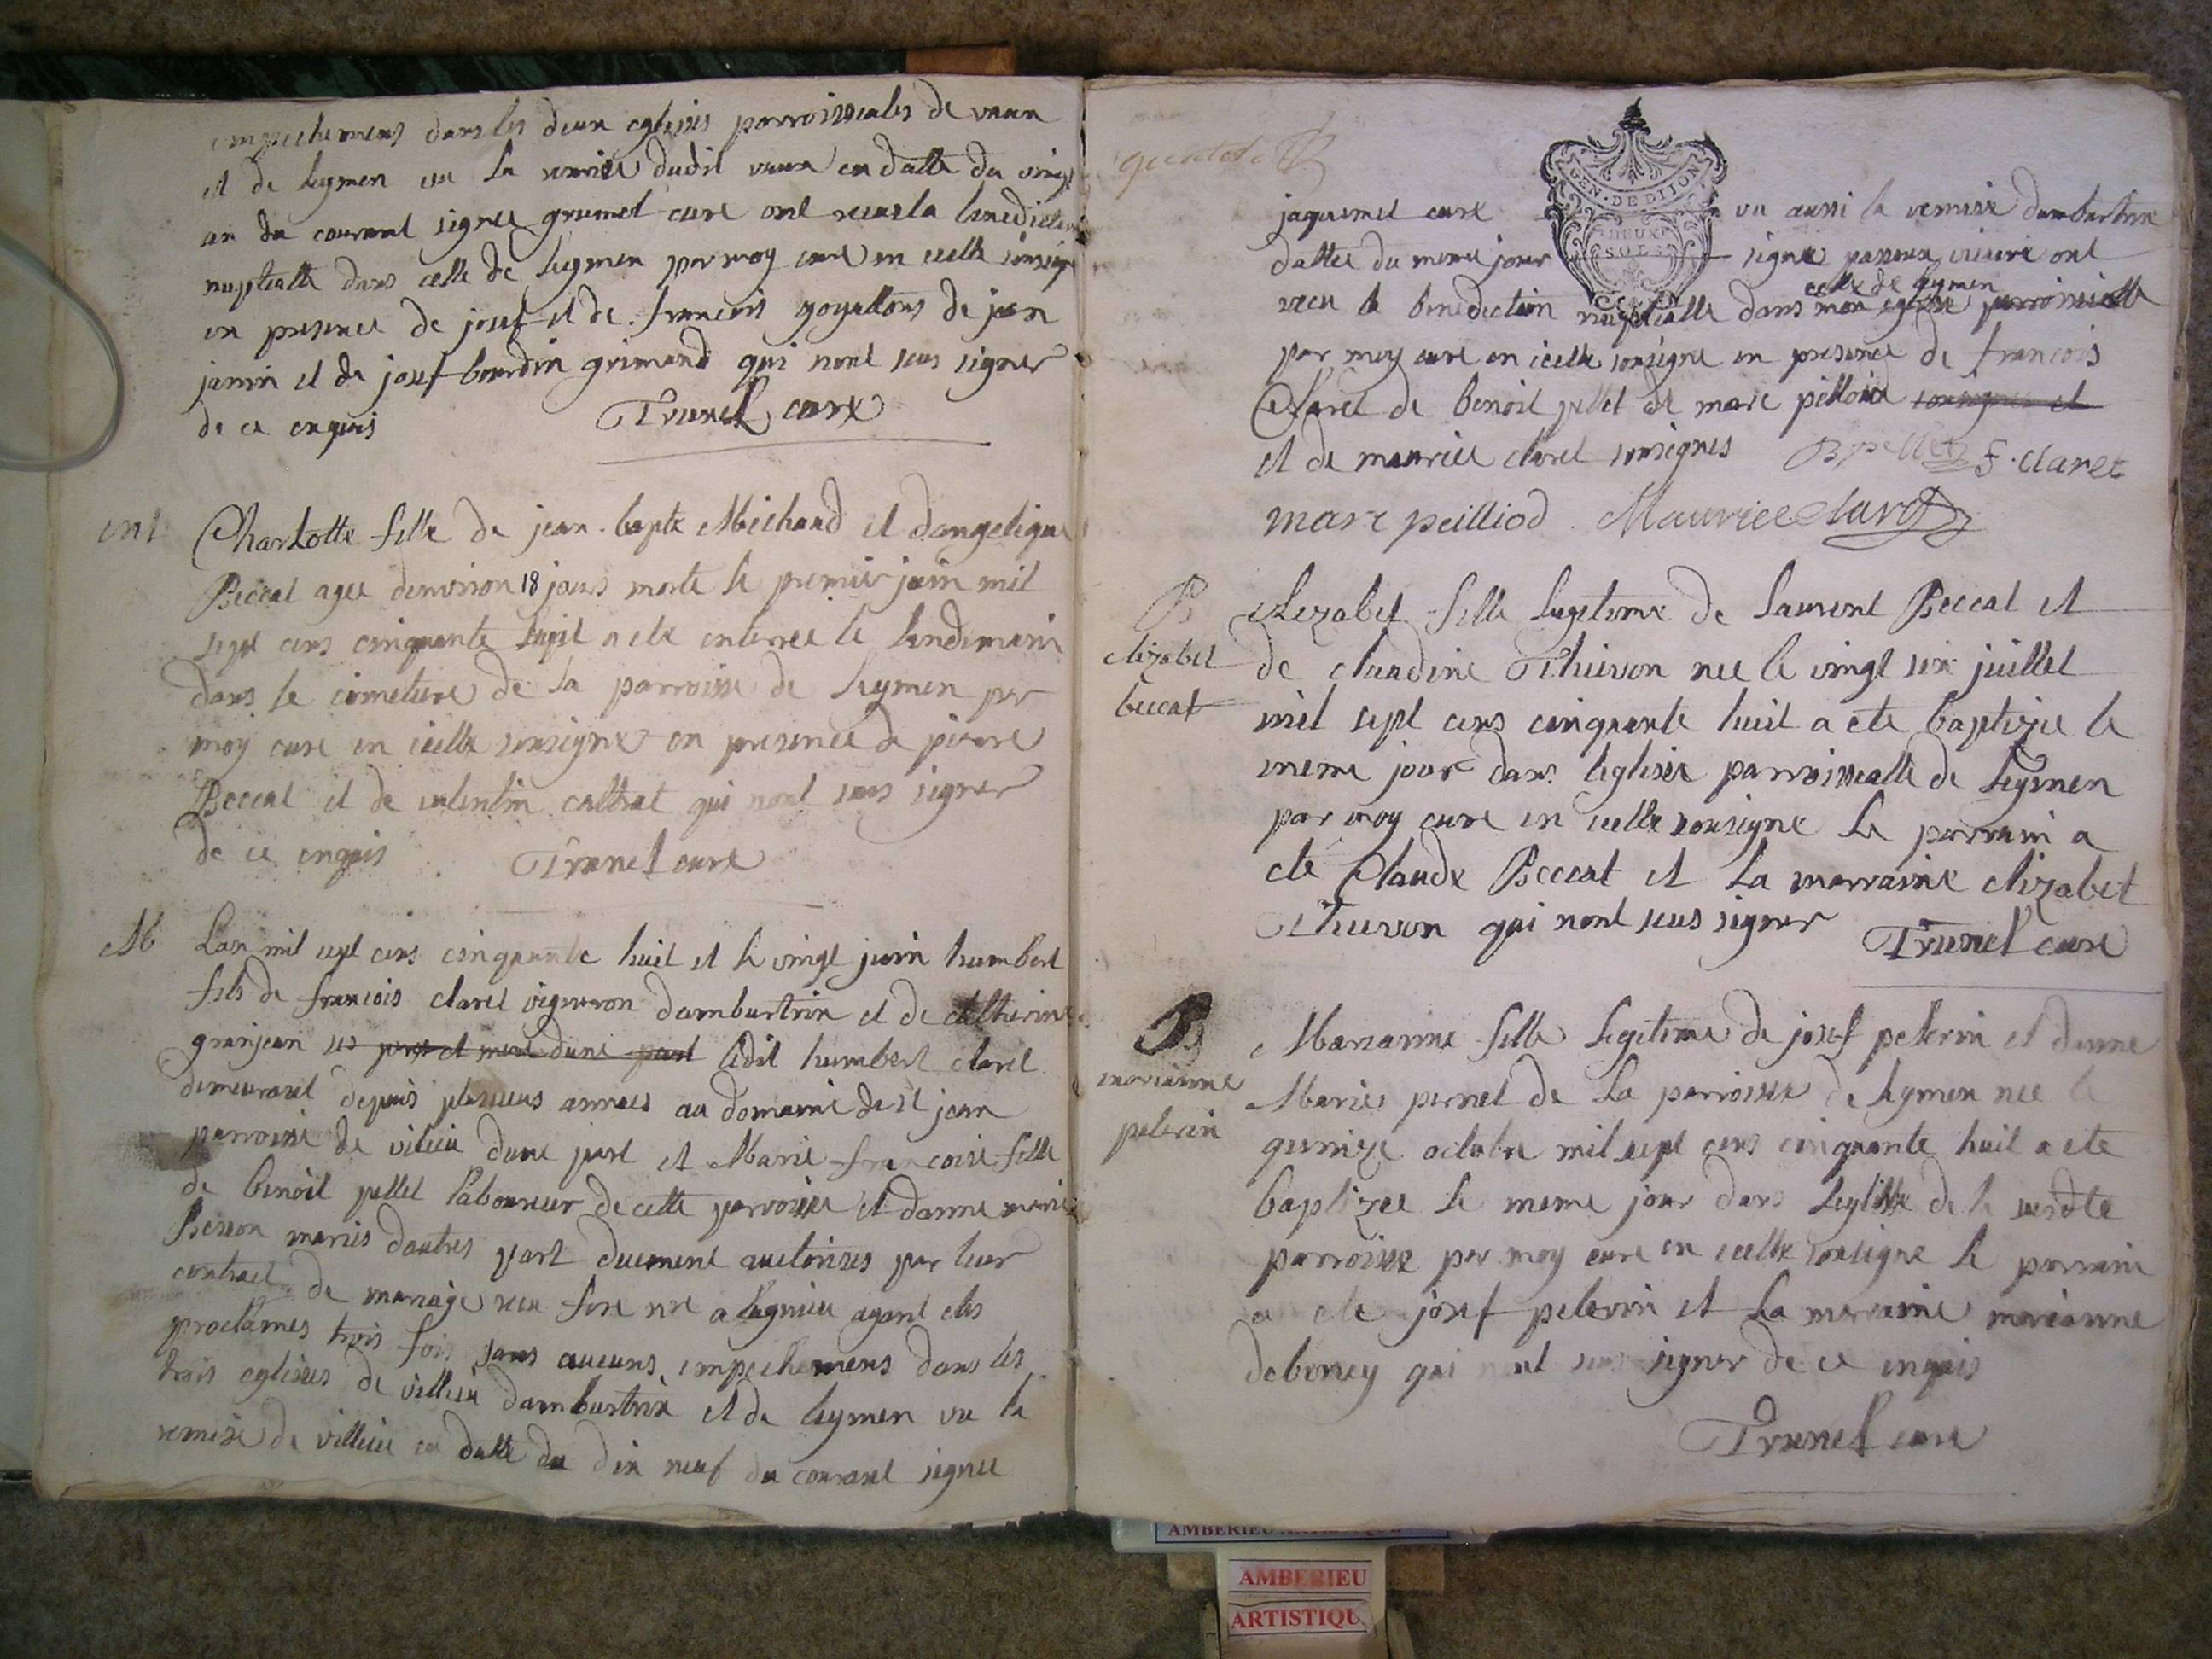 empechemens dans les deux eglises parroissiales de vaux
et de leymen vu la remise dudit vaux en datte du vingt
un du courant signee grumet cure ont recus la benediction
nuptialle dans celle de leymen par moy cure en icelle sousigne
en presence de josef et de francois goyettons de jean
janin et de josef bourdin grimaud qui nont sceus signer
de ce enquis Trunel cure
ent Charlotte fille de jean bapte Michaud et dangelique
Beccat agee denviron 18 jours morte le premier juin mil
sept cens cinquante huit a ete enterree le lendemain
dans le cimetiere de la parroisse de leymen par
moy cure en icelle sousigne en presence de pierre
Beccat et de valentin calltrat qui nont sceus signer
de ce enquis Trunel cure
M Lan mil sept cens cinquante huit et le vingt juin humbert
fils de francois claret vigneron dambutrix et de catherine
granjean ses pere et mere dune part ledit humbert claret
demeurant depuis plusieurs annees au domaine de st jean
parroisse de vilieu dune part et Marie francoise fille
de benoit pellet laboureur de cette parroisse et danne marie
Besson maries dautres part duement auctorises par leur
contract de mariage recu fore nre a lagnieu ayant etes
proclames trois fois sans aucuns empechemens dans les
trois eglises de villieu dambutrix et de leymen vu la
remise de villieu en datte du dix neuf du courant signee
jaquemet cure vu aussi la remise dambutrix
GEN. DE DIJON
DEUX
SOLS
dattee du meme jour signee vicaire ont
celle de leymen
recu la benediction nuptialle dans mon eglise parroissialle
par moy cure en icelle sousigne en presence de francois
Claret de benoit pellet de marc pelloud sousignes et
et de maurice claret sousignes B pellet f. claret
marc peilliod Maurice claret
B
elizabet
beccat
Elezabet fille legitime de laurent Beccat et
de claudine Thuivon nee le vingt six juillet
mil sept cens cinquante huit a ete baptizee le
meme jour dans leglise parroissialle de leymen
par moy cure en icelle sousigne le parrain a
ete Claude Beccat et la marraine elizabet
Thuivon qui nont sceus signer Trunel cure
B
marianne
pelerin
Marianne fille legitime de josef pelerin et danne
Marie pernet de la parroisse de leymen nee le
quinze octobre mil sept cens cinquante huit a ete
baptizee le meme jour dans leglise de la susdte
parroisse par moy cure en icelle sousigne le parrain
a ete josef pelerin et la marraine marianne
deboney qui nont sceus signer de ce enquis
Trunel cure
AMBERIEU ARTISTIQUE
AMBERIEU
ARTISTIQU